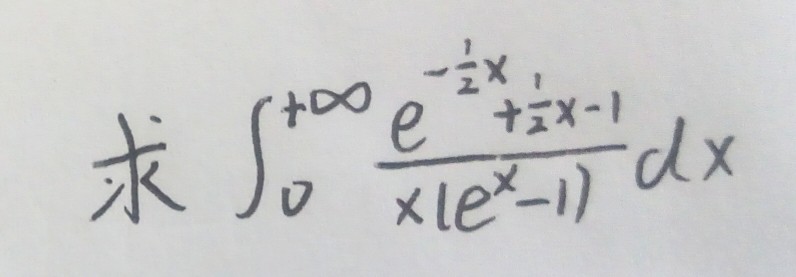 求 $\int_{0}^{+\infty} \frac{e^{-\frac{1}{2}x}+\frac{1}{2}x-1}{x(e^{x}-1)} dx$